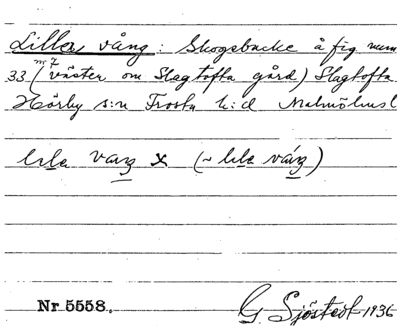 Lilla vång: Skogsbacke å fig. num
33 (m 7 väster om Slagtofta gård) Slagtofta
Hörby s:n Frosta h:d Malmöhusl
lila vaŋ x (~ lila váŋ)
Nr. 5558. G. Sjöstedt 1936